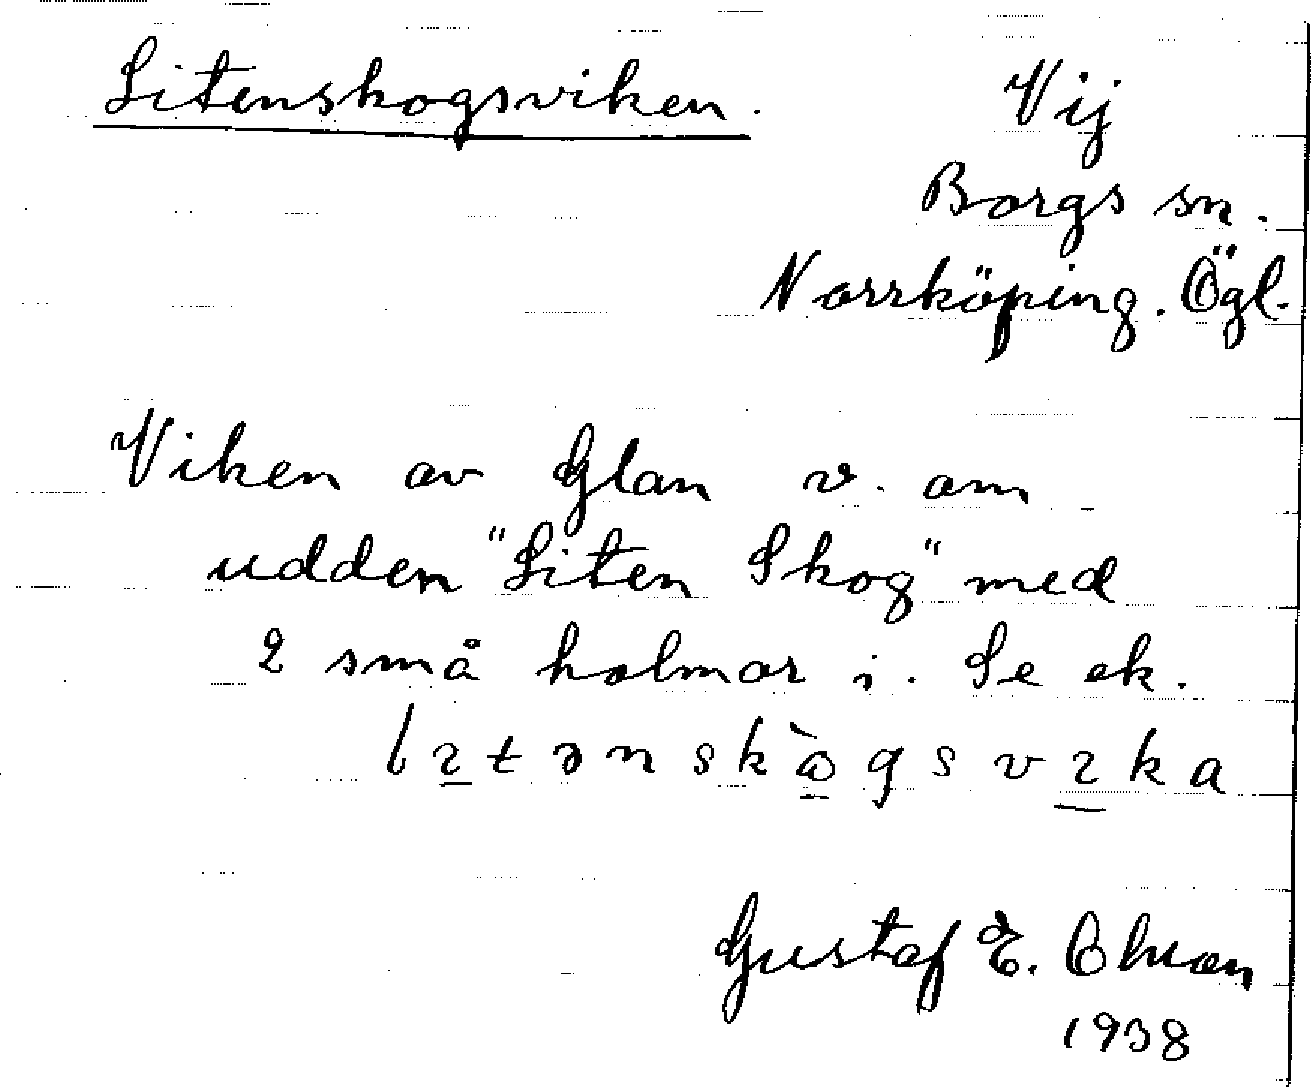 Litenskogsviken.
Vij
Borgs sn.
Norrköping. Ögl.
Viken av Glan v. om
udden "Liten Skog" med
2 små holmar i. Se ek.
Gustaf E.
1938